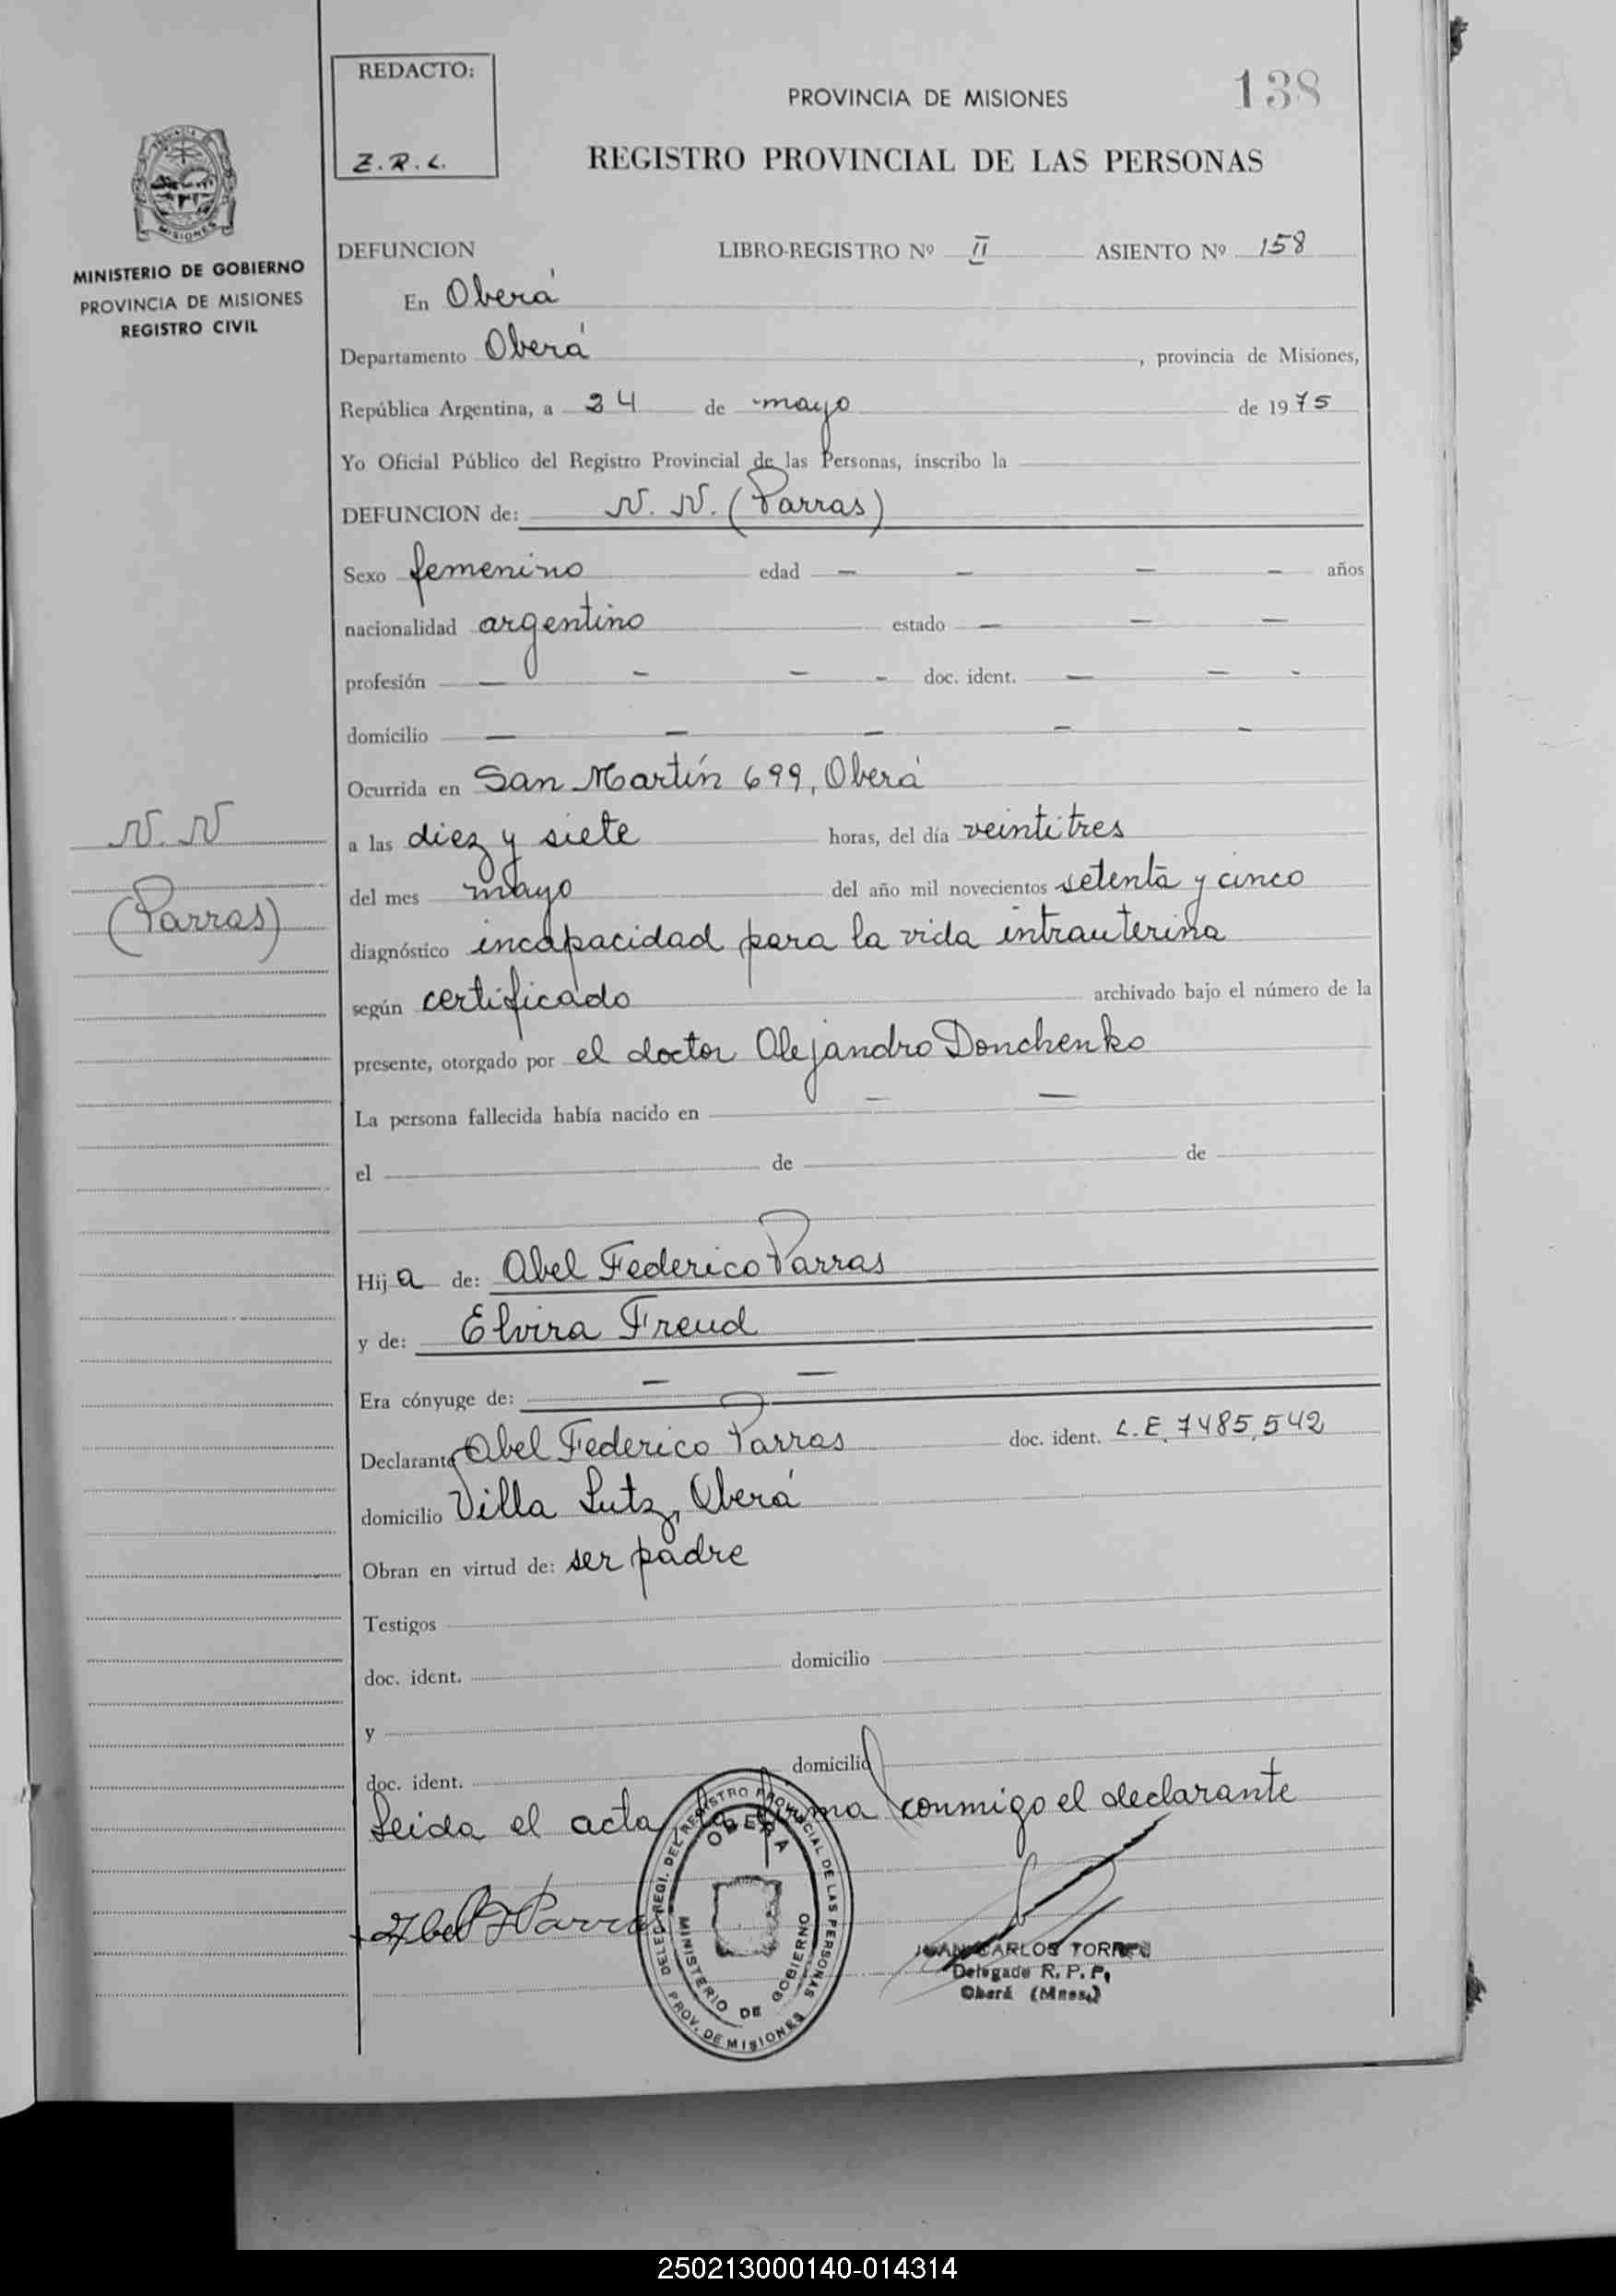 REDACTO:
Z.R.L.
PROVINCIA DE MISIONES
138
REGISTRO PROVINCIAL DE LAS PERSONAS
MISIONES
MINISTERIO DE GOBIERNO
PROVINCIA DE MISIONES
REGISTRO CIVIL
DEFUNCION LIBRO-REGISTRO Nº II ASIENTO Nº 158
En Oberá
Departamento Oberá, provincia de Misiones,
República Argentina, a 24 de mayo de 1975
Yo Oficial Público del Registro Provincial de las Personas, inscribo la
DEFUNCION de: N. N. (Parras)
Sexo femenino edad — — — — años
nacionalidad argentino estado — — —
profesión — — — - doc. ident. — — -
domicilio — — — — -
Ocurrida en San Martín 699, Oberá
N. N
(Parras)
a las diez y siete horas, del día veintitres
del mes mayo del año mil novecientos setenta y cinco
diagnóstico incapacidad para la vida intrauterina
según certificado archivado bajo el número de la
presente, otorgado por el doctor Alejandro Donchenko
La persona fallecida había nacido en — —
el de de
Hija de: Abel Federico Parras
y de: Elvira Freud
Era cónyuge de: — —
Declarante Abel Federico Parras doc. ident. L.E. 7485,542
domicilio Villa Lutz, Oberá
Obran en virtud de: ser padre
Testigos
doc. ident. domicilio
y
doc. ident. domicilio
Leida el acta, la firma conmigo el declarante
Abel F Parras
DELEG. REGI. DEL REGISTRO PROVINCIAL DE LAS PERSONAS
OBERA
MINISTERIO DE GOBIERNO
PROV. DE MISIONES
JUAN CARLOS TORRES
Delegado R. P. P.
Oberá (Mnes.)
250213000140-014314